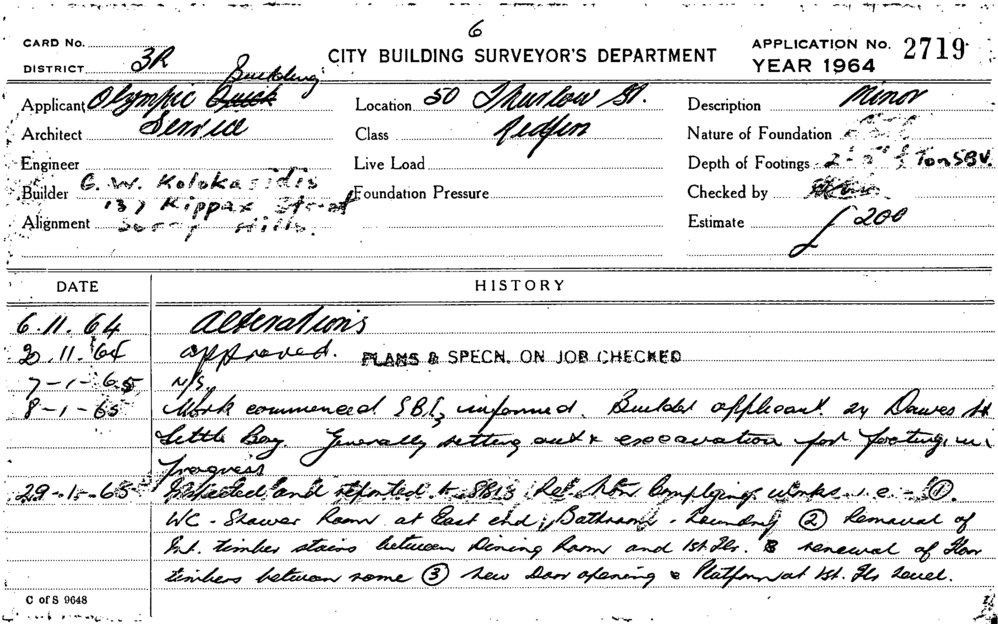 6
CARD No.
CITY BUILDING SURVEYOR'S DEPARTMENT
APPLICATION No. 2719
DISTRICT 3R
YEAR 1964
Building
Applicant Olympic Quick
Location 50 Thurlow St.
Description Minor
Architect Service
Class Redfern
Nature of Foundation
Engineer
Live Load
Depth of Footings Ton SBV.
Builder G. W. Kolokasidis
Foundation Pressure
Checked by
137 Kippax Street
Alignment Surry Hills.
Estimate £200
DATE
HISTORY
6.11.64 Alterations
20.11.64 approved. PLANS & SPECN. ON JOB CHECKED
7-1-65 N/S
8-1-65 Work commenced informed. Builder applicant 24 Dawes St
Little Bay. Generally setting out & excavation for footing in
progress
29-1-65 Inspected and reported to Re. Non Complying works i.e. - ①
WC - Shower Room at East end, Bathroom - Laundry ② Removal of
Int. timber stairs between Dining Room and 1st Flr. & renewal of Floor
timbers between same ③ New Door opening & Platform at 1st. Flr Level.
C of S 9648